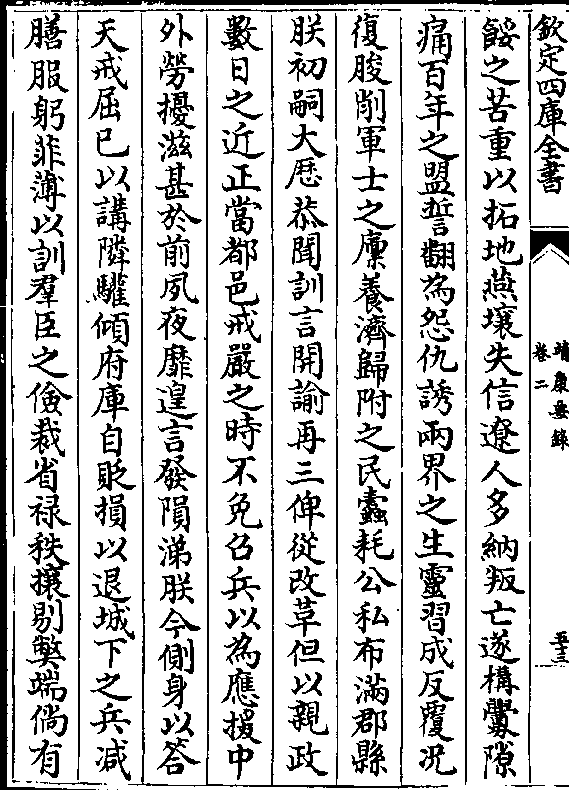 欽定四庫全書
靖康要錄
卷二
五十三
餒之苦重以拓地燕壤失信遼人多納叛亡遂構釁隙
痛百年之盟誓翻為怨仇誘兩界之生靈習成反覆况
復朘削軍士之廪養濟歸附之民蠧耗公私布滿郡縣
朕初嗣大厯恭聞訓言開諭再三俾從改革但以親政
數日之近正當都邑戒嚴之時不免召兵以為應援中
外勞擾滋甚於前夙夜靡遑言發隕涕朕今側身以答
天戒屈已以講隣驩傾府庫自貶損以退城下之兵減
膳服躬菲薄以訓羣臣之儉裁省禄秩攘剔弊端倘有